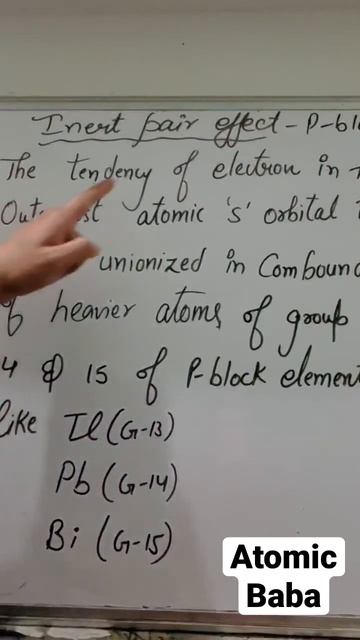 Inert pair effect - P-blo
The tendency of electron in
Out st atomic 's' orbital
unionized in Compound
of heavier atoms of group
4 & 15 of P-block element
like Tl (G-13)
Pb (G-14)
Bi (G-15)
Atomic
Baba